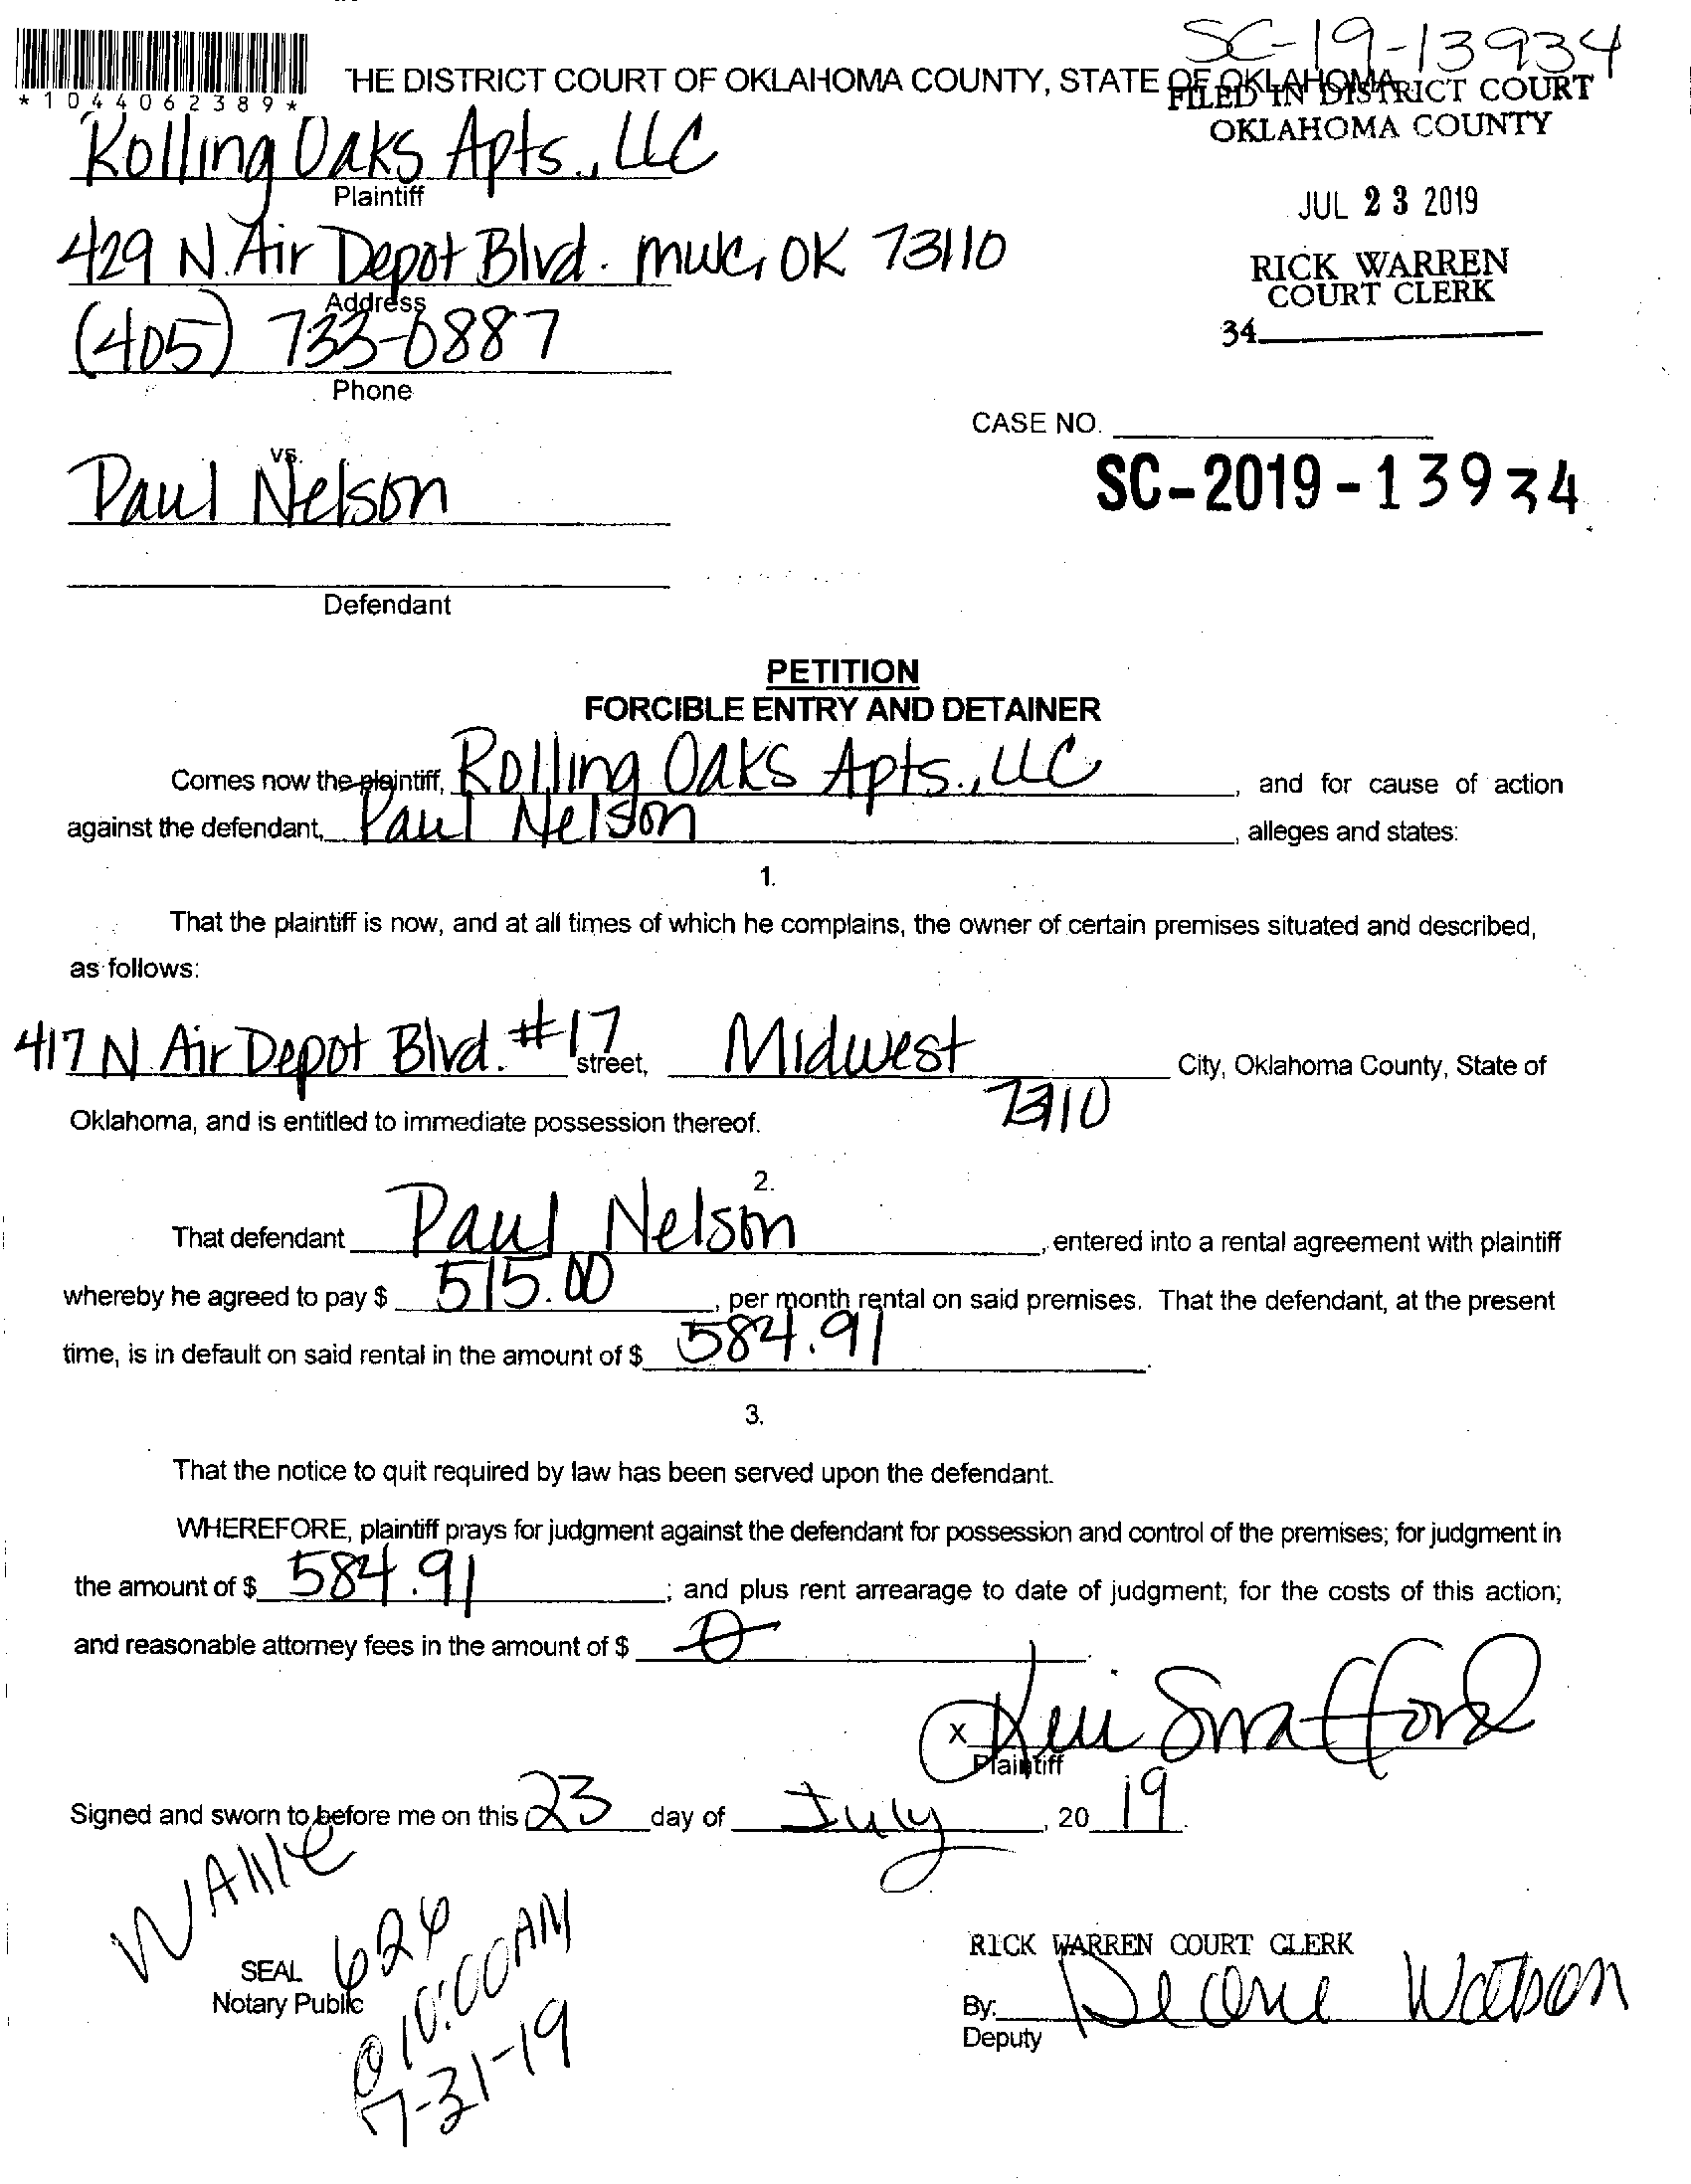 SC-19-13934
THE DISTRICT COURT OF OKLAHOMA COUNTY, STATE OF OKLAHOMA
*1044062389*
FILED IN DISTRICT COURT
OKLAHOMA COUNTY
Rolling Oaks Apts., LLC
Plaintiff
JUL 23 2019
429 N. Air Depot Blvd. MWC, OK 73110
Address
RICK WARREN
COURT CLERK
(405) 733-0887
34
Phone
CASE NO.
vs.
Paul Nelson
SC-2019-13934
Defendant
PETITION
FORCIBLE ENTRY AND DETAINER
Comes now the plaintiff, Rolling Oaks Apts., LLC, and for cause of action
against the defendant, Paul Nelson, alleges and states:
1.
That the plaintiff is now, and at all times of which he complains, the owner of certain premises situated and described,
as follows:
417 N Air Depot Blvd. #17 street, Midwest City, Oklahoma County, State of
73110
Oklahoma, and is entitled to immediate possession thereof.
2.
That defendant Paul Nelson, entered into a rental agreement with plaintiff
whereby he agreed to pay $ 515.00, per month rental on said premises. That the defendant, at the present
time, is in default on said rental in the amount of $ 584.91.
3.
That the notice to quit required by law has been served upon the defendant.
WHEREFORE, plaintiff prays for judgment against the defendant for possession and control of the premises; for judgment in
the amount of $ 584.91; and plus rent arrearage to date of judgment; for the costs of this action;
and reasonable attorney fees in the amount of $ 0
X
Plaintiff
Signed and sworn to before me on this 23 day of July, 20 19.
SEAL
Notary Public
@ 10:00AM
7-31-19
RICK WARREN COURT CLERK
By: Watson
Deputy